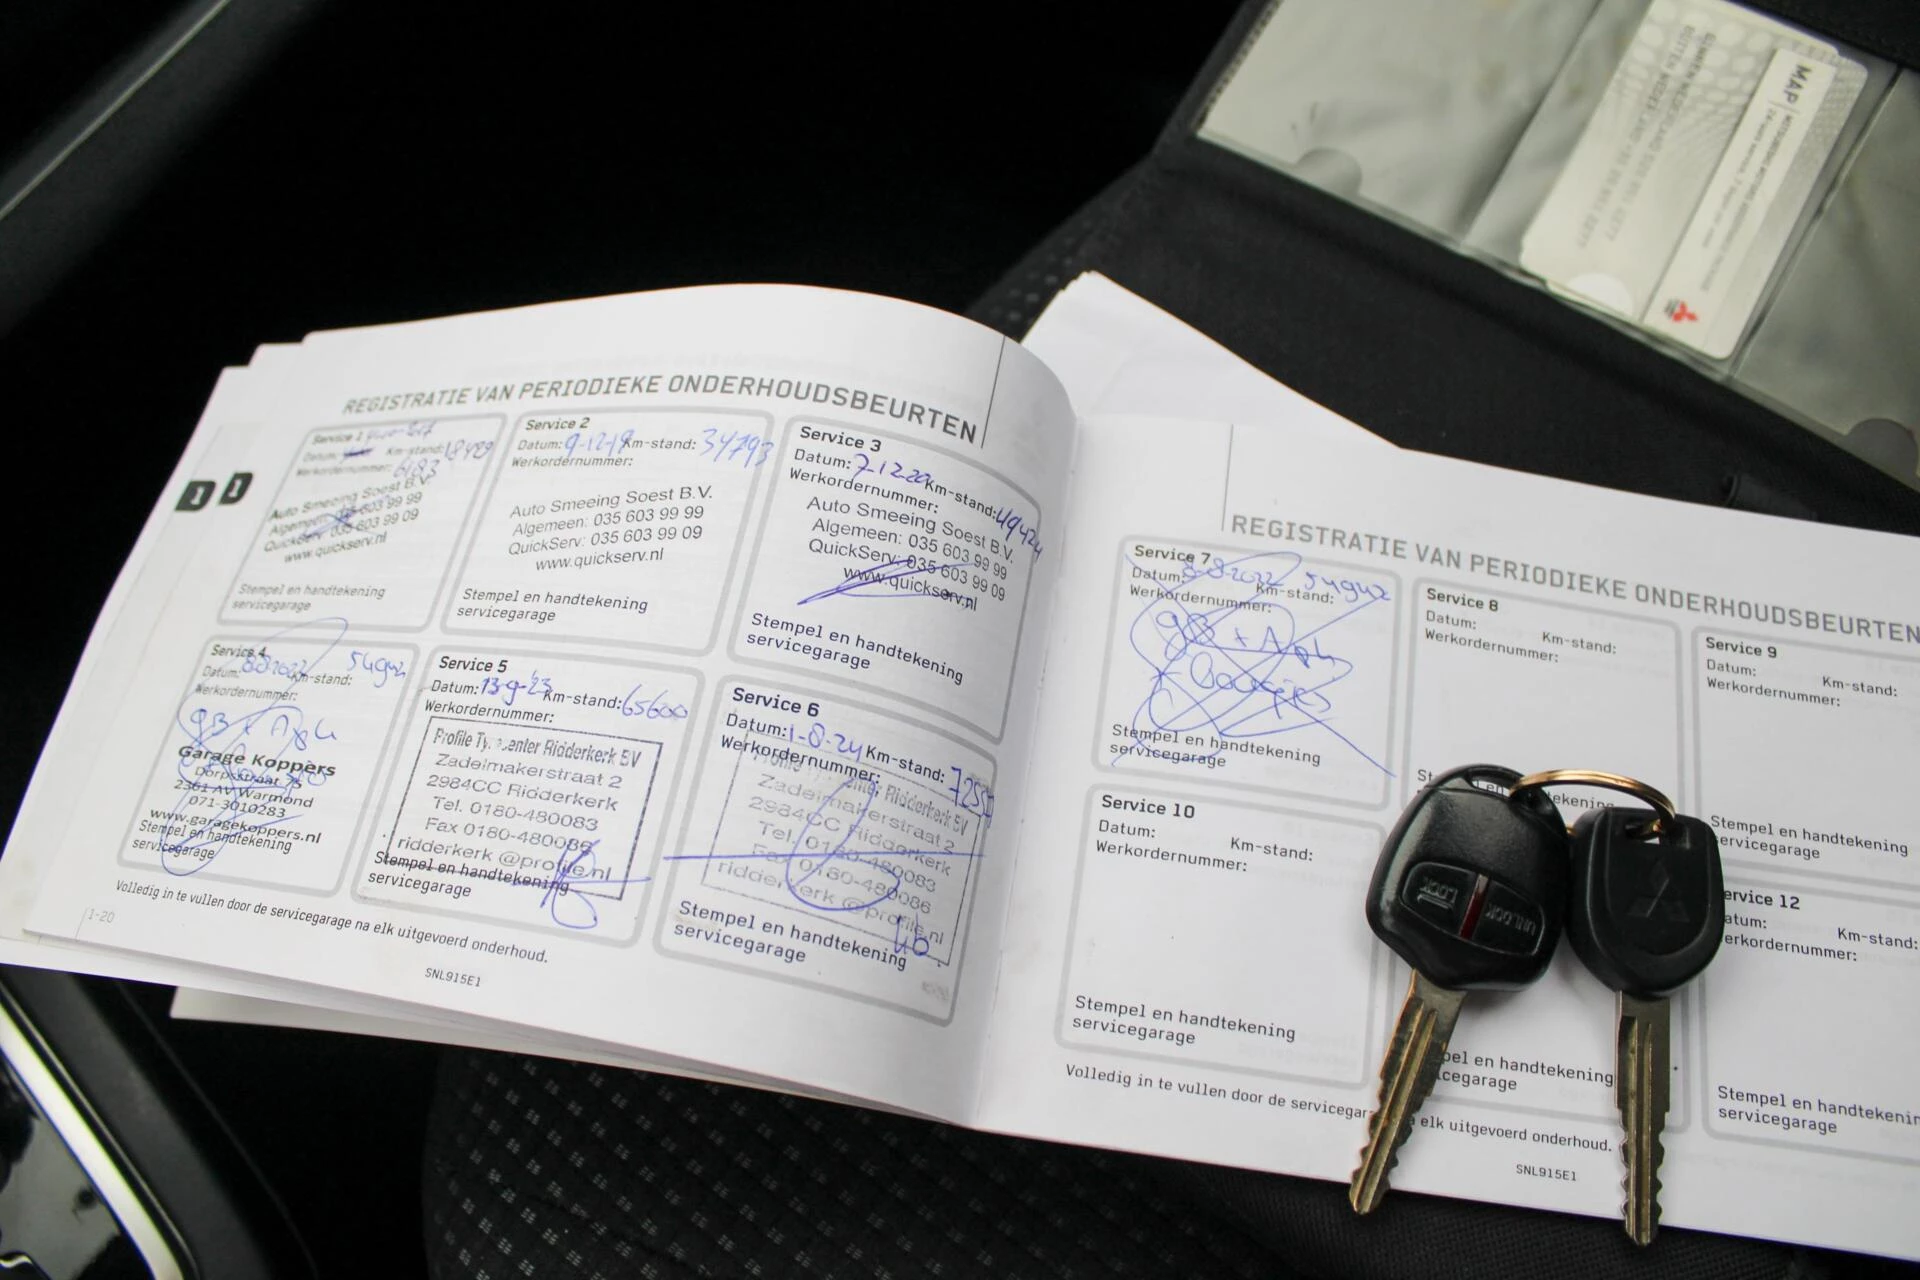 REGISTRATIE VAN PERIODIEKE ONDERHOUDSBEURTEN
Service 1
Datum: Km-stand: 18429
Werkordernummer: 6183
Auto Smeeing Soest B.V.
Algemeen: 035 603 99 99
QuickServ: 035 603 99 09
www.quickserv.nl
Stempel en handtekening
servicegarage
Service 2
Datum: 9-12-19 Km-stand: 34793
Werkordernummer:
Auto Smeeing Soest B.V.
Algemeen: 035 603 99 99
QuickServ: 035 603 99 09
www.quickserv.nl
Stempel en handtekening
servicegarage
Service 3
Datum: 7-12-20 Km-stand: 49424
Werkordernummer:
Auto Smeeing Soest B.V.
Algemeen: 035 603 99 99
QuickServ: 035 603 99 09
www.quickserv.nl
Stempel en handtekening
servicegarage
Service 4
Datum: 8-8-2022 Km-stand: 54942
Werkordernummer:
Garage Koppers
Dorpsstraat
2361 AV Warmond
071-3010283
www.garagekoppers.nl
Stempel en handtekening
servicegarage
Service 5
Datum: 13-9-'23 Km-stand: 65600
Werkordernummer:
Profile Tyrecenter Ridderkerk BV
Zadelmakerstraat 2
2984CC Ridderkerk
Tel. 0180-480083
Fax 0180-480086
ridderkerk @profile.nl
Stempel en handtekening
servicegarage
Service 6
Datum: 1-8-24 Km-stand:
Werkordernummer:
Profile Tyrecenter Ridderkerk BV
Zadelmakerstraat 2
2984CC Ridderkerk
Tel. 0180-480083
Fax 0180-480086
ridderkerk @profile.nl
Stempel en handtekening
servicegarage
1-20
Volledig in te vullen door de servicegarage na elk uitgevoerd onderhoud.
SNL915E1
REGISTRATIE VAN PERIODIEKE ONDERHOUDSBEURTEN
Service 7
Datum: 8-8-2022 Km-stand: 54942
Werkordernummer:
gB + Apk
+ Bougies
Stempel en handtekening
servicegarage
Service 8
Datum: Km-stand:
Werkordernummer:
Service 9
Datum: Km-stand:
Werkordernummer:
Stempel en handtekening
servicegarage
Service 10
Datum: Km-stand:
Werkordernummer:
Stempel en handtekening
servicegarage
pel en handtekening
cegarage
ervice 12
atum: Km-stand:
erkordernummer:
Stempel en handtekenin
servicegarage
Volledig in te vullen door de servicegar a elk uitgevoerd onderhoud.
SNL915E1
LOCK
UNLOCK
MAP